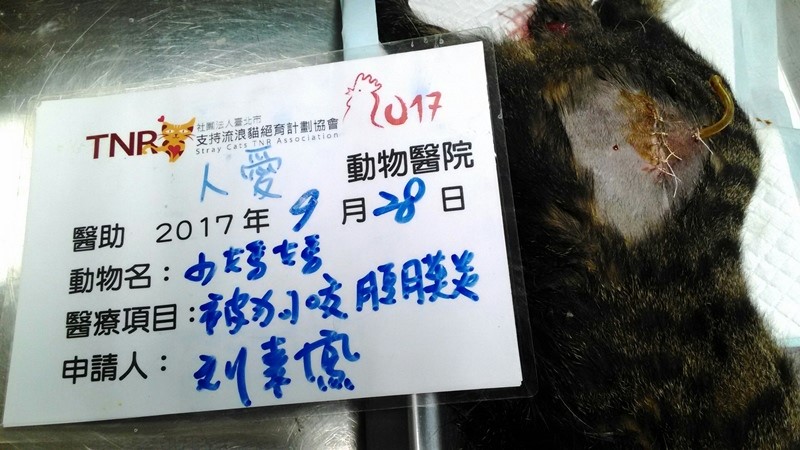 TNR 社團法人臺北市
支持流浪貓絕育計劃協會
Stray Cats TNR Association
2017
人愛 動物醫院
醫助 2017年 9月28日
動物名：小
醫療項目：被狗咬 腹膜炎
申請人：刘素鳳